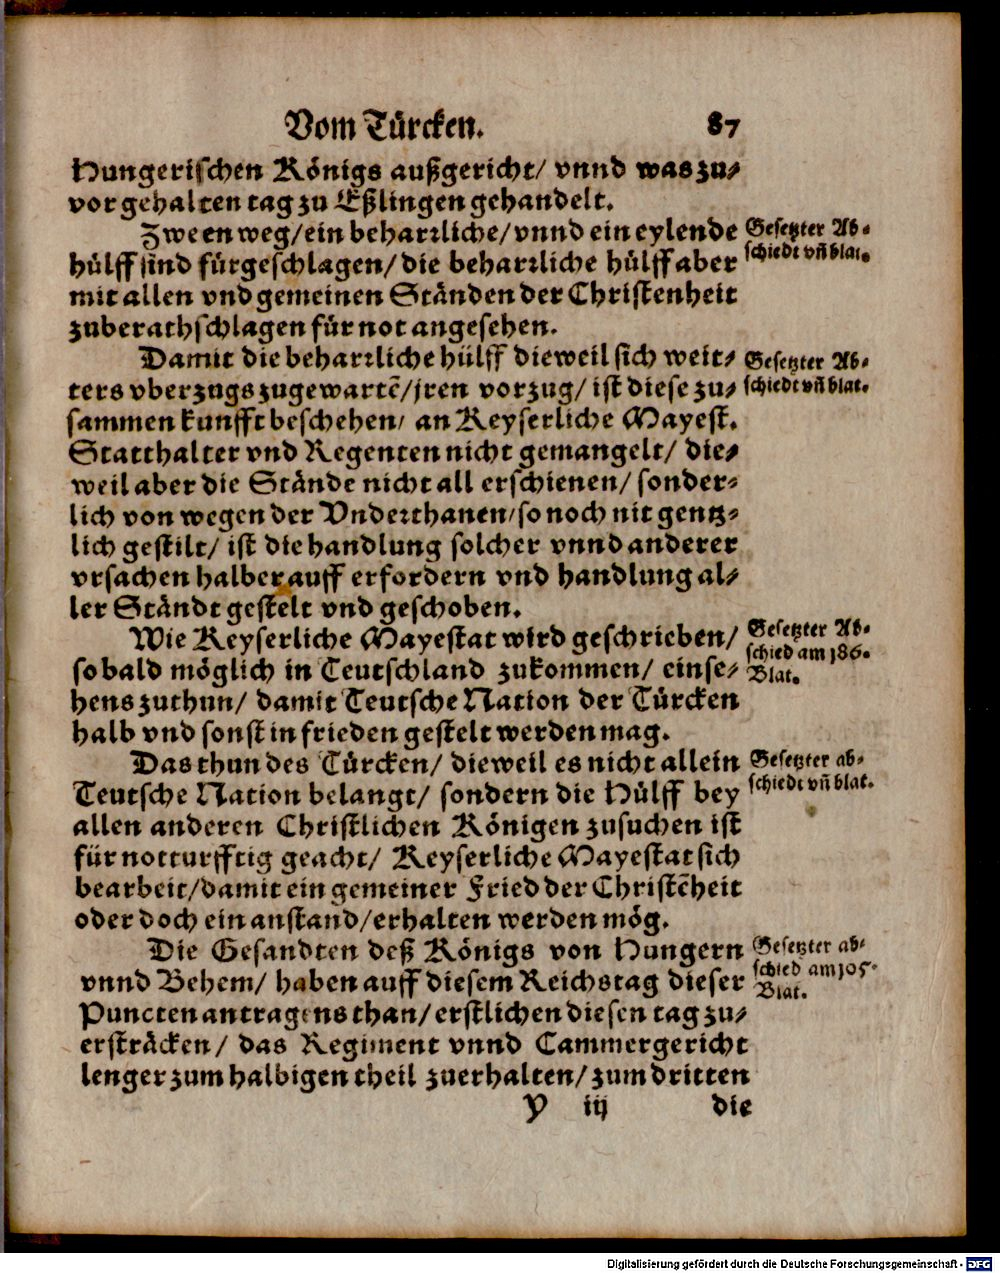 Vom Türcken. 87
Hungerischen Königs außgericht/ vnnd was zu⸗
vor gehalten tag zu Eßlingen gehandelt.
Zween weg/ ein beharrliche/ vnnd ein eylende
Gesetzter Ab⸗
hülff sind fürgeschlagen/ die beharrliche hülff aber
schiedt vñ blat.
mit allen vnd gemeinen Ständen der Christenheit
zuberathschlagen für not angesehen.
Damit die beharrliche hülff dieweil sich weit⸗
Gesetzter Ab⸗
ters vberzugs zugewartē/ jren vorzug/ ist diese zu⸗
schiedt vñ blat.
sammen kunfft beschehen/ an Keyserliche Mayest.
Statthalter vnd Regenten nicht gemangelt/ die⸗
weil aber die Stände nicht all erschienen/ sonder⸗
lich von wegen der Vnderthanen/ so noch nit gentz⸗
lich gestilt/ ist die handlung solcher vnnd anderer
vrsachen halber auff erfordern vnd handlung al⸗
ler Ständt gestelt vnd geschoben.
Wie Keyserliche Mayestat wird geschrieben/
Gesetzter Ab⸗
so bald möglich in Teutschland zukommen/ einse⸗
schied am 186.
Blat.
hens zuthun/ damit Teutsche Nation der Türcken
halb vnd sonst in frieden gestelt werden mag.
Das thun des Türcken/ dieweil es nicht allein
Gesetzter ab⸗
Teutsche Nation belangt/ sondern die Hülff bey
schiedt vñ blat.
allen anderen Christlichen Königen zusuchen ist
für notturfftig geacht/ Keyserliche Mayestat sich
bearbeit/ damit ein gemeiner Fried der Christēheit
oder doch ein anstand/ erhalten werden mög.
Die Gesandten deß Königs von Hungern
Gesetzter ab⸗
vnnd Behem/ haben auff diesem Reichstag dieser
schied am 105.
Blat.
Puncten antragens than/ erstlichen diesen tag zu⸗
ersträcken/ das Regiment vnnd Cammergericht
lenger zum halbigen theil zuerhalten/ zum dritten
Y iij die
Digitalisierung gefördert durch die Deutsche Forschungsgemeinschaft - DFG